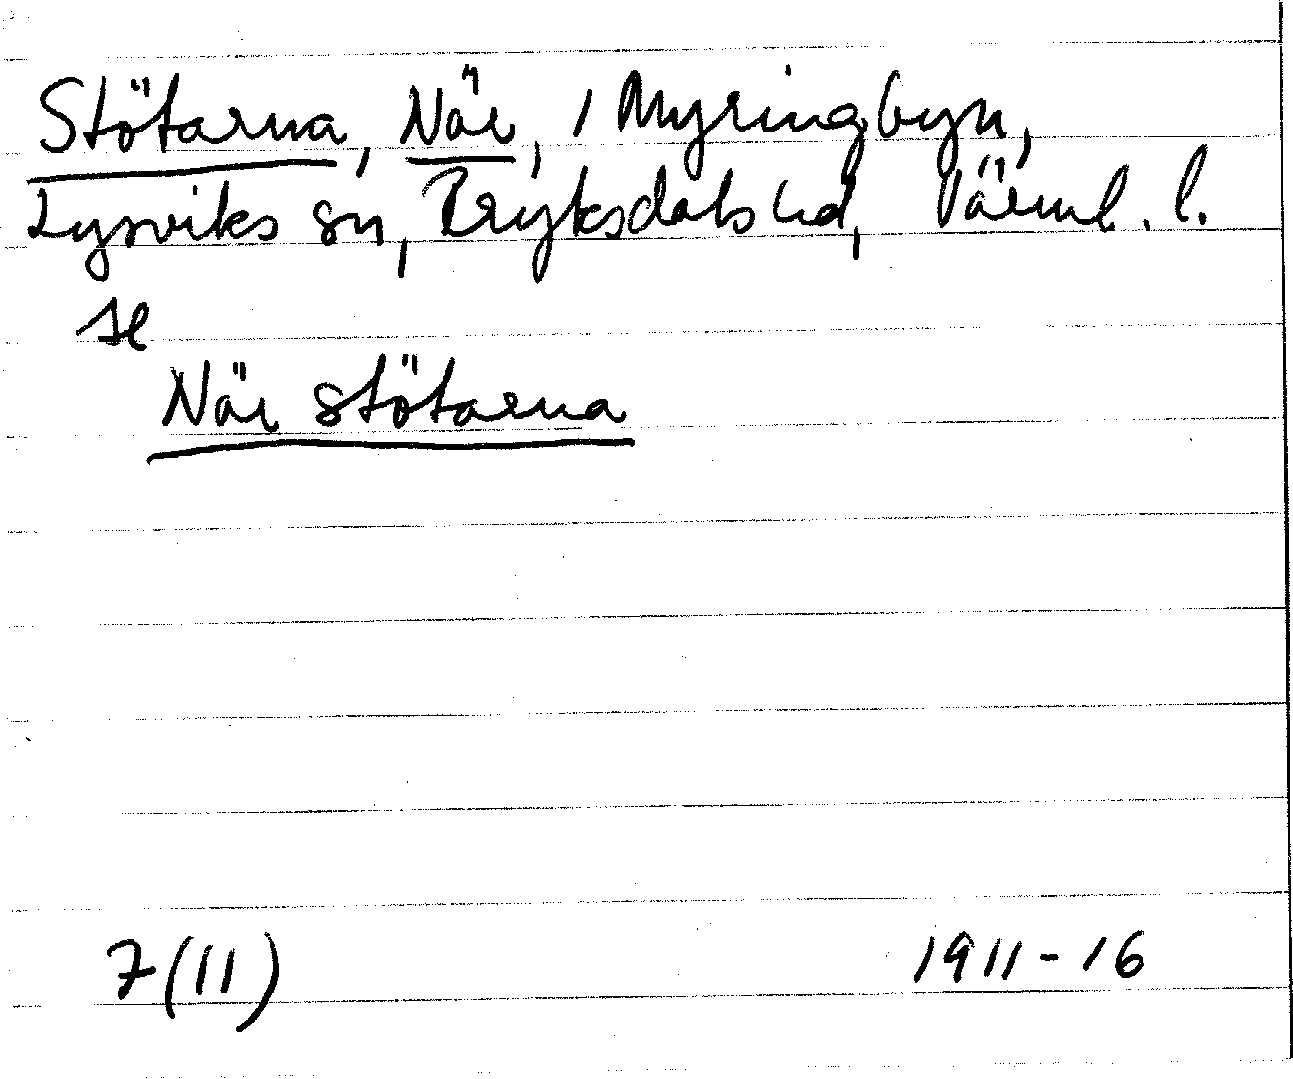 Stötarna, När, i Myringbyn,
Lysviks sn, Fryksdals hd, Värml. l.
se
När stötarna
7(11) 1911-16